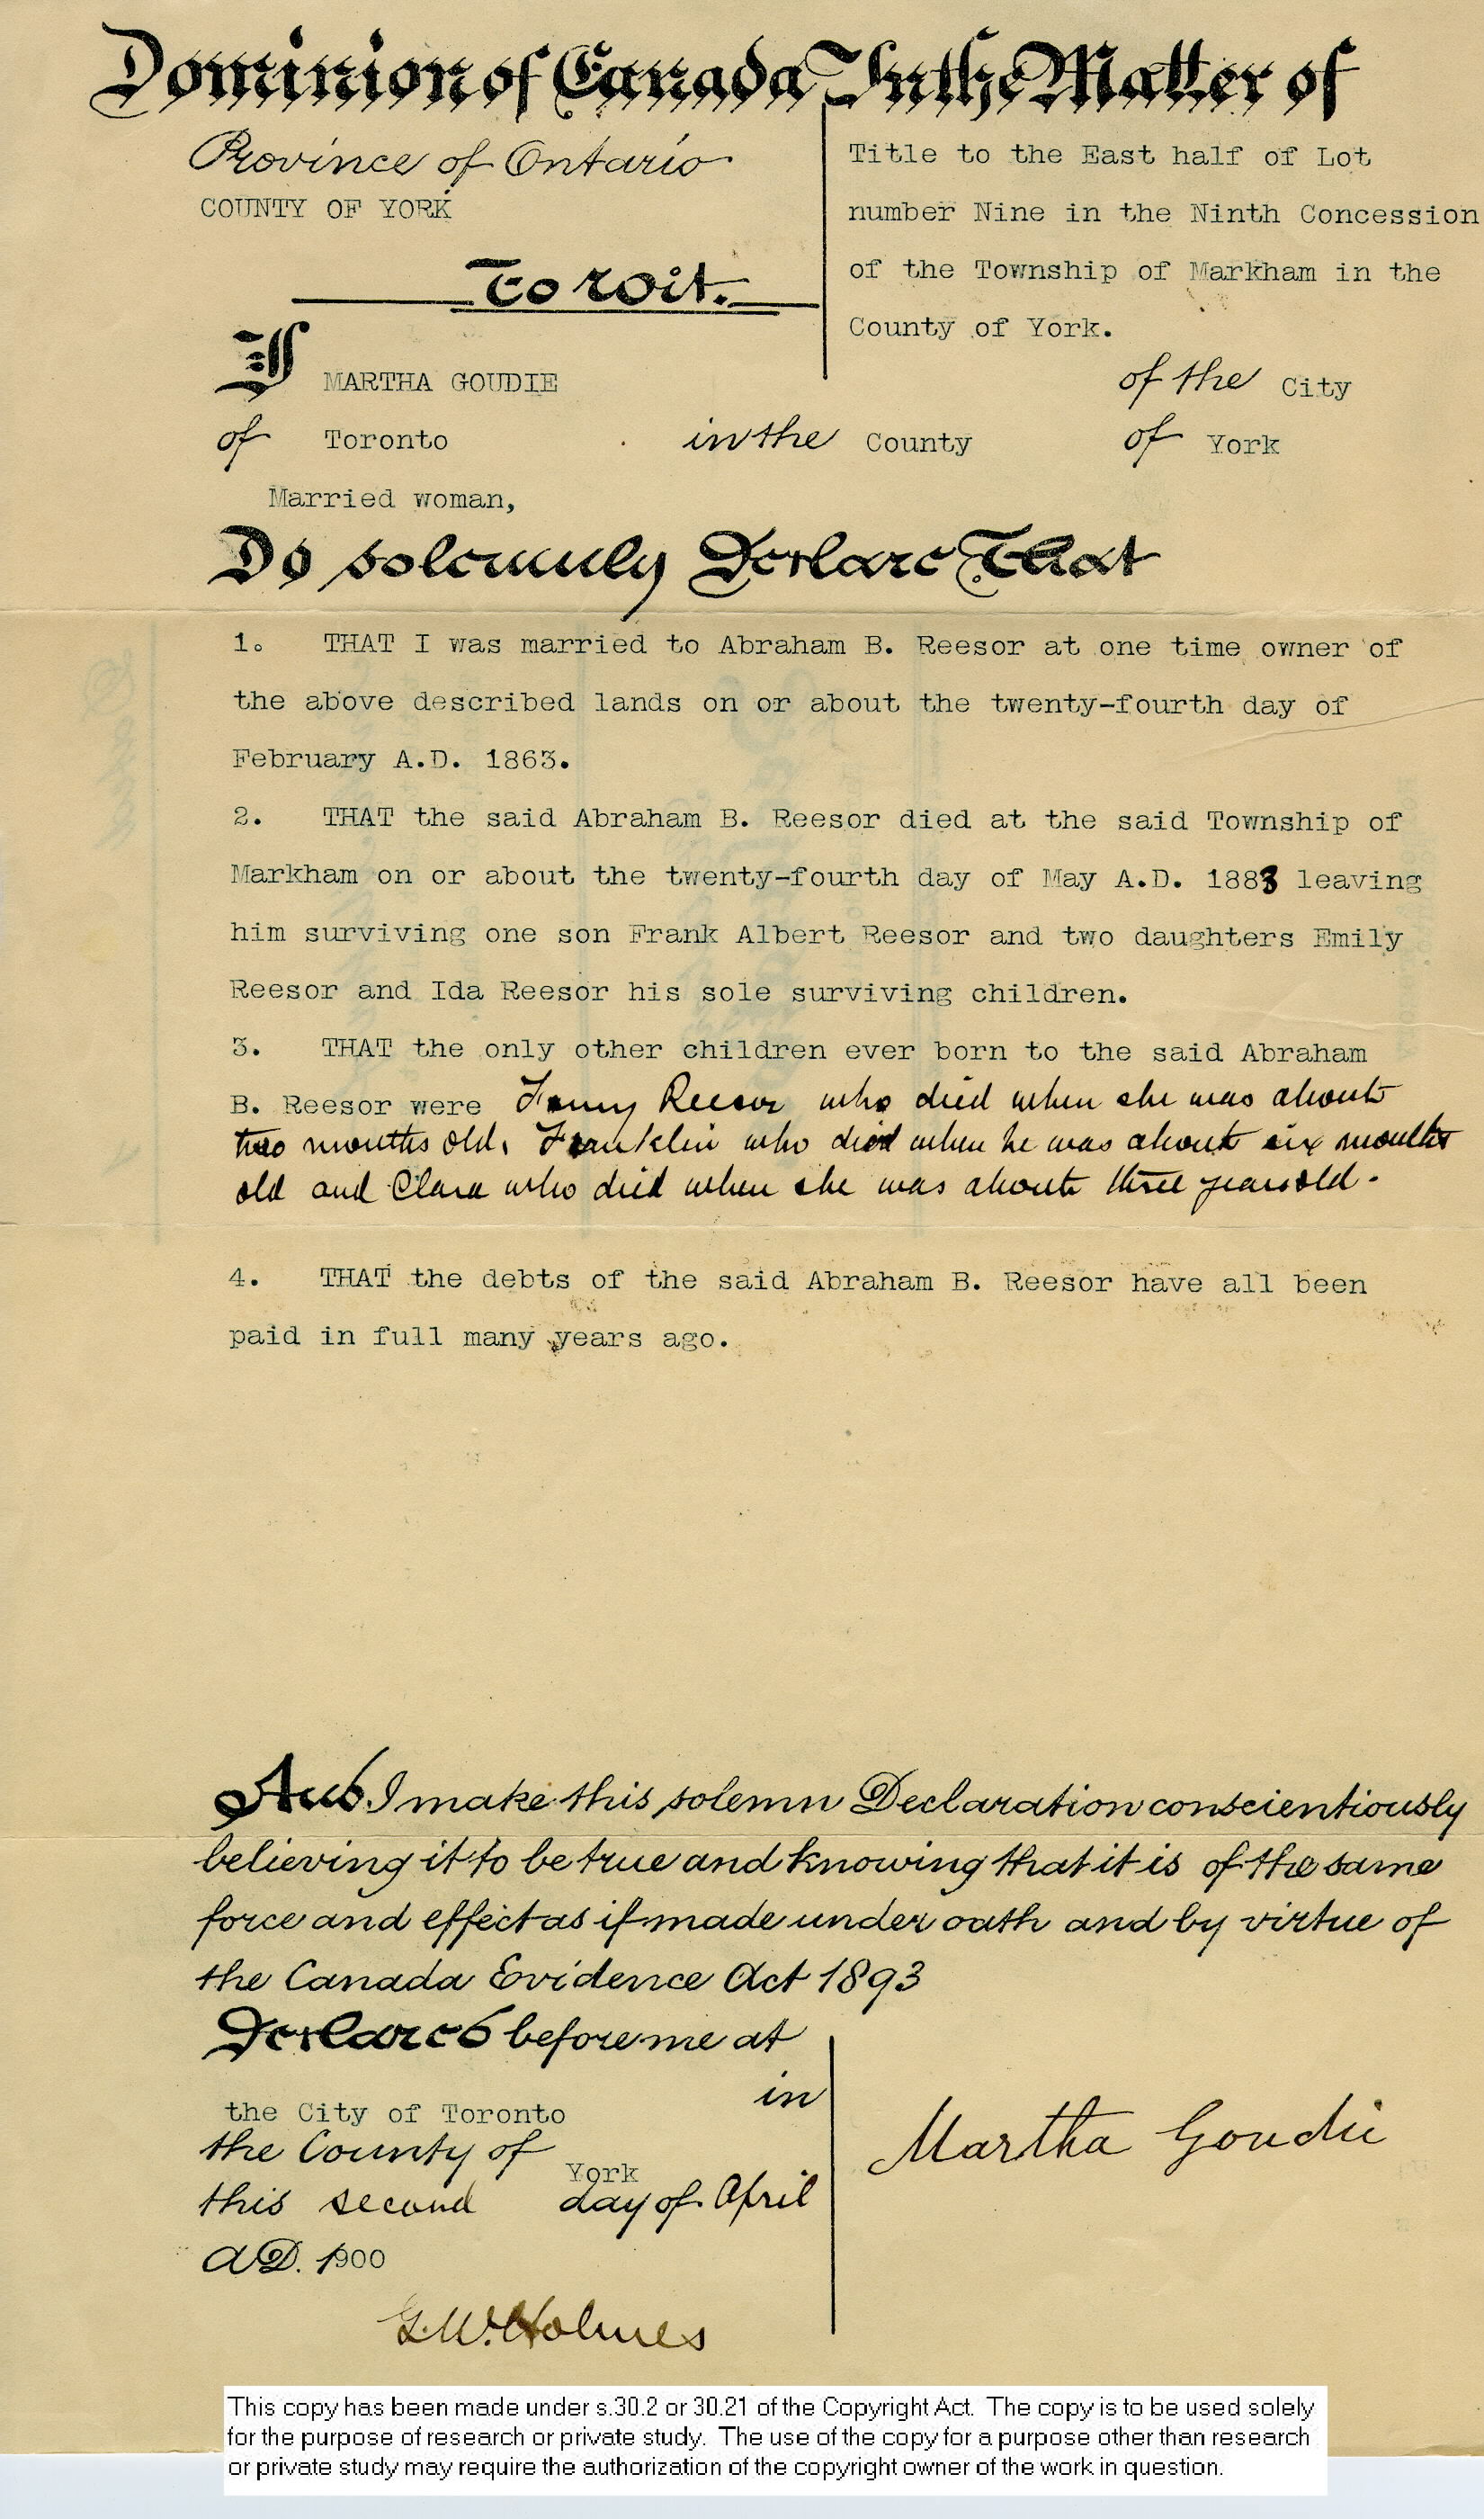 Dominion of Canada In the Matter of
Province of Ontario
COUNTY OF YORK
To wit.
Title to the East half of Lot
number Nine in the Ninth Concession
of the Township of Markham in the
County of York.
I MARTHA GOUDIE of the City
of Toronto in the County of York
Married woman,
Do solemnly Declare That
1. THAT I was married to Abraham B. Reesor at one time owner of
the above described lands on or about the twenty-fourth day of
February A.D. 1863.
2. THAT the said Abraham B. Reesor died at the said Township of
Markham on or about the twenty-fourth day of May A.D. 1883 leaving
him surviving one son Frank Albert Reesor and two daughters Emily
Reesor and Ida Reesor his sole surviving children.
3. THAT the only other children ever born to the said Abraham
B. Reesor were Fanny Reesor who died when she was about
two months old, Franklin who died when he was about six months
old and Clara who died when she was about three years old.
4. THAT the debts of the said Abraham B. Reesor have all been
paid in full many years ago.
And I make this solemn Declaration conscientiously
believing it to be true and knowing that it is of the same
force and effect as if made under oath and by virtue of
the Canada Evidence Act 1893
Declared before me at
the City of Toronto in
the County of York
this second day of April
A.D. 1900
Martha Goudie
G.W. Holmes
This copy has been made under s.30.2 or 30.21 of the Copyright Act. The copy is to be used solely
for the purpose of research or private study. The use of the copy for a purpose other than research
or private study may require the authorization of the copyright owner of the work in question.